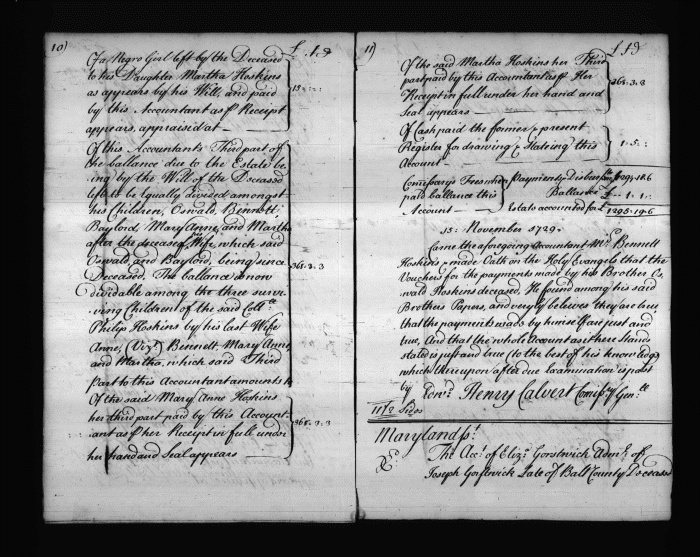 10)
£ . s . d
Of a Negro Girl left by the Deceased
to his Daughter Martha Hoskins
as appears by his Will, and paid
by this Accountant as ℔ Receipt
appears, appraised at
15 : - : -
Of this Accountants Third part of
the ballance due to the Estate be,
ing by the Will of the Deceased
left to be Equally divided amongst
his Children, Oswald, Bennett
Bayloid, Mary Anne, and Martha
after the deceased Wife, which said
Oswald, and Bayloid, being since
Deceased. The ballance is now
dividable among the three survi-
ving Children of the said Coll:
Philip Hoskins by his last Wife
Anne, (Viz:t) Bennett, Mary Anne
and Martha, which said Third
part to this Accountant amounts to
361 . 3 . 3
Of the said Mary Anne Hoskins
her third part paid by this Account-
ant as ℔ her Receipt in full under
her hand and Seal appears
361 . 3 . 3
11)
£ s d
Of the said Martha Hoskins her Third
part paid by this Accountant as ℔ Her
Receipt in full under her hand and
Seal appears
361 . 3 . 3
Of Cash paid the former & present
Register for drawing & Stateing this
Account
1 . 5 : -
Comissarys Fees when
paid ballance this
Account
Payments & Disburs
Ballance
£ - 1 . 1 : -
Estate accounted for £ 1295 . 19 . 6
15: November 1729.
Came the aforegoing Accountant Mr. Bennett
Hoskins & made Oath on the Holy Evangels that the
Vouchers for the payments made by his Brother Os,
wald Hoskins deceased, He found among his said
Brothers Papers, and veryly beleives they are true
that the payments made by himself are just and
true, And that the whole Account as it here Stands
stated is just and true (to the best of his knowledge)
which Account upon after due Examination is past
by
Henry Calvert Comiss:ry Gen:ll
11 1/2 Sides
Maryland ss:t
The Acc:t of Eliz: Gorstwich Adm:x of
Joseph Gorstwich Late of Balt County Deceased